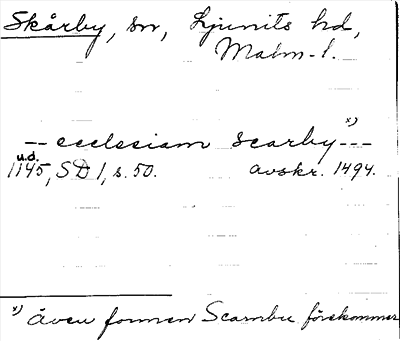 Skårby, sn, Ljunits hd,
Malm-l.
-- ecclesiam scarby x) ---
u.d.
1145, SD 1, s. 50. avskr. 1494.
x) Även formen Scarnbu förekommer